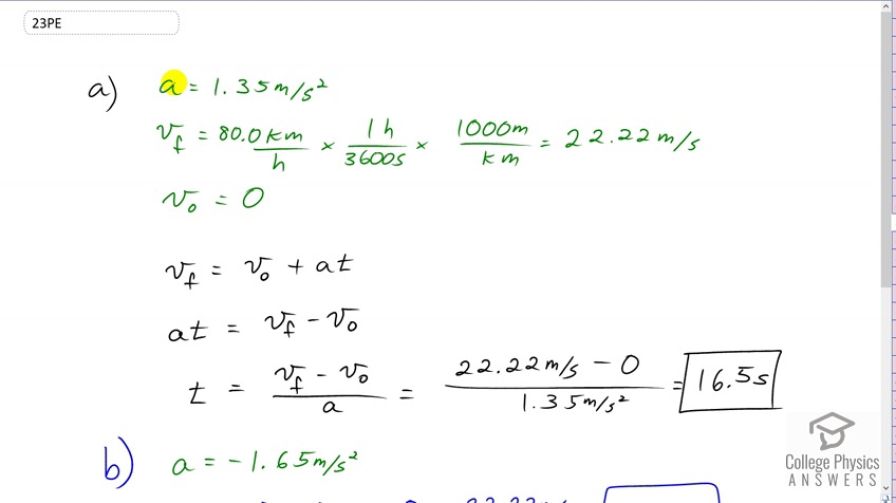 23PE
a) a = 1.35 m/s²
v_f = 80.0 km/h × 1h/3600s × 1000m/km = 22.22 m/s
v₀ = 0
v_f = v₀ + at
at = v_f - v₀
t = (v_f - v₀)/a = (22.22 m/s - 0)/(1.35 m/s²) = 16.5 s
b) a = -1.65 m/s²
College Physics
ANSWERS